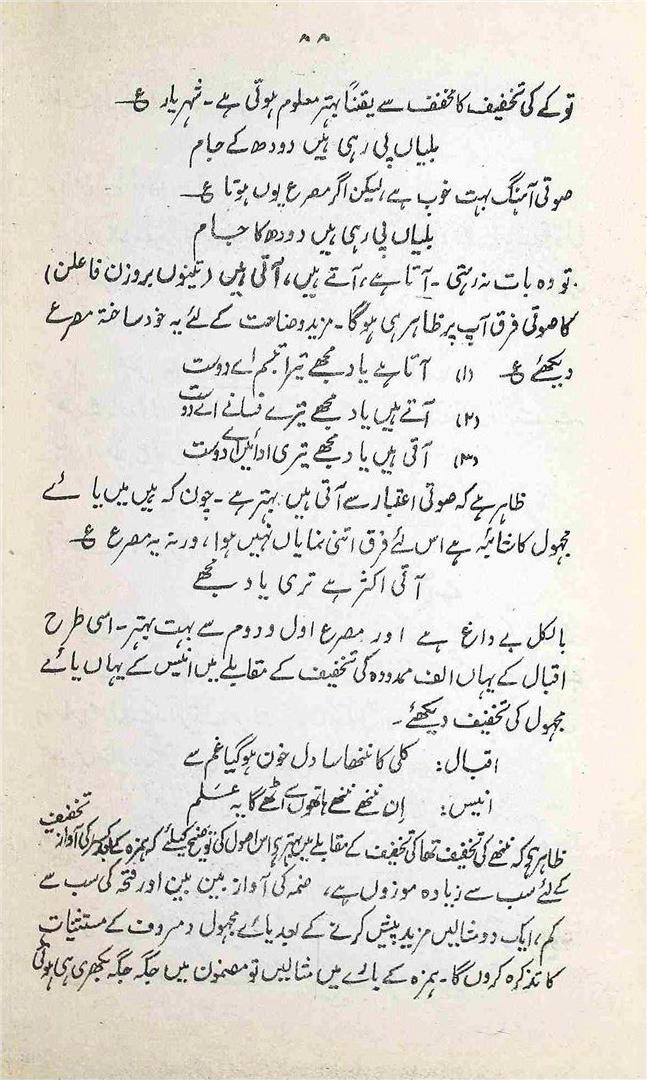 ۸۸
تو کے کی تخفیف کا مخفف سے یقیناً بہتر معلوم ہوتی ہے۔ شہریار ع
بلیاں پی رہی ہیں دودھ کے جام
صوتی آہنگ بہت خوب ہے، لیکن اگر مصرع یوں ہوتا ع
بلیاں پی رہی ہیں دودھ کا جام
تو وہ بات نہ رہتی۔ آتا ہے، آتے ہیں، آتی ہیں (تینوں بروزن فاعلن)
کا صوتی فرق آپ پر ظاہر ہی ہوگا۔ مزید وضاحت کے لئے یہ خود ساختہ مصرع
دیکھئے ع (۱) آتا ہے یاد مجھے تیرا تبسم اے دوست
(۲) آتے ہیں یاد مجھے تیرے فسانے اے دوست
(۳) آتی ہیں یاد مجھے تیری ادائیں اے دوست
ظاہر ہے کہ صوتی اعتبار سے آتی ہیں بہتر ہے۔ چون کہ ہیں میں یائے
مجہول کا شائبہ ہے اس لئے فرق اتنی نمایاں نہیں ہوا، ورنہ یہ مصرع ع
آتی اکثر ہے تری یاد مجھے
بالکل بے داغ ہے اور مصرع اول و دوم سے بہت بہتر۔ اسی طرح
اقبال کے یہاں الف ممدودہ کی تخفیف کے مقابلے میں انیس کے یہاں یائے
مجہول کی تخفیف دیکھئے۔
اقبال: کلی کا ننھا سا دل خون ہوگیا غم سے
انیس: اِن ننھے ننھے ہاتھوں سے اٹھے گا یہ عَلم
ظاہر ہے کہ ننھے کی تخفیف تھا کی تخفیف کے مقابلے میں بہتر ہے اس اصول کی توضیح کیلئے کہ ہمزہ کے بعد کسر کی آواز تخفیف
کے لئے سب سے زیادہ موزوں ہے، ضمہ کی آواز بین بین اور فتحہ کی سب سے
کم، ایک دو مثالیں مزید پیش کرنے کے بعد یائے مجہول و معروف کے مستثنیات
کا تذکرہ کروں گا۔ ہمزہ کے بارے میں مثالیں تو مضمون میں جگہ جگہ بکھری ہی ہوئی